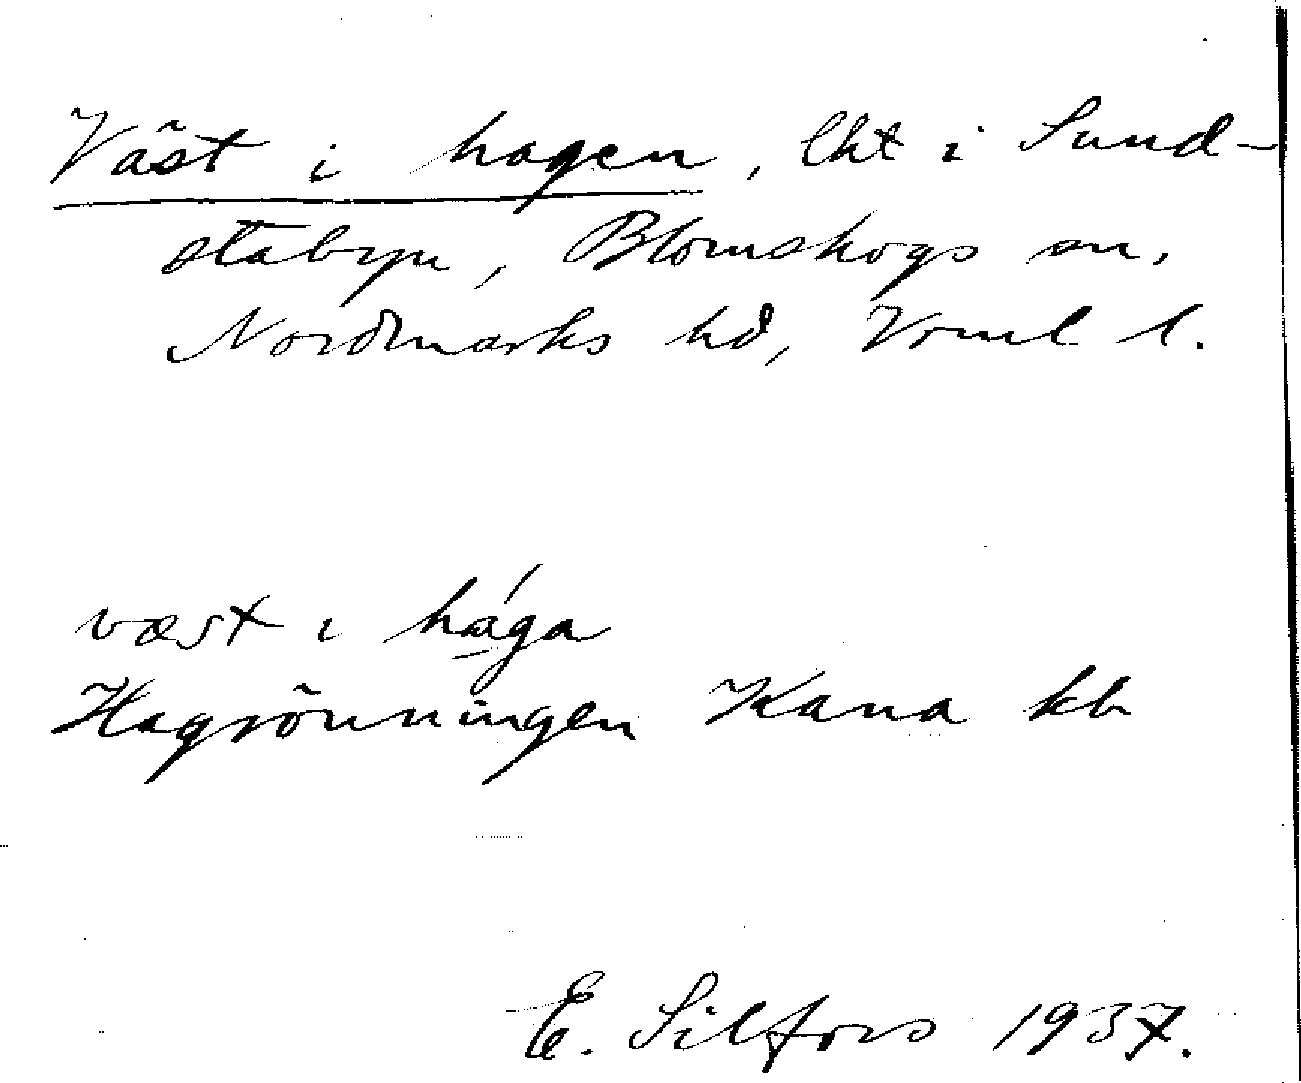 Väst i hagen, lht i Sund-
stabyn, Blomskogs sn.
Nordmarks hd, Vrml l.
væst i hága
Hagrönningen Kana kb
E. Silfors 1937.